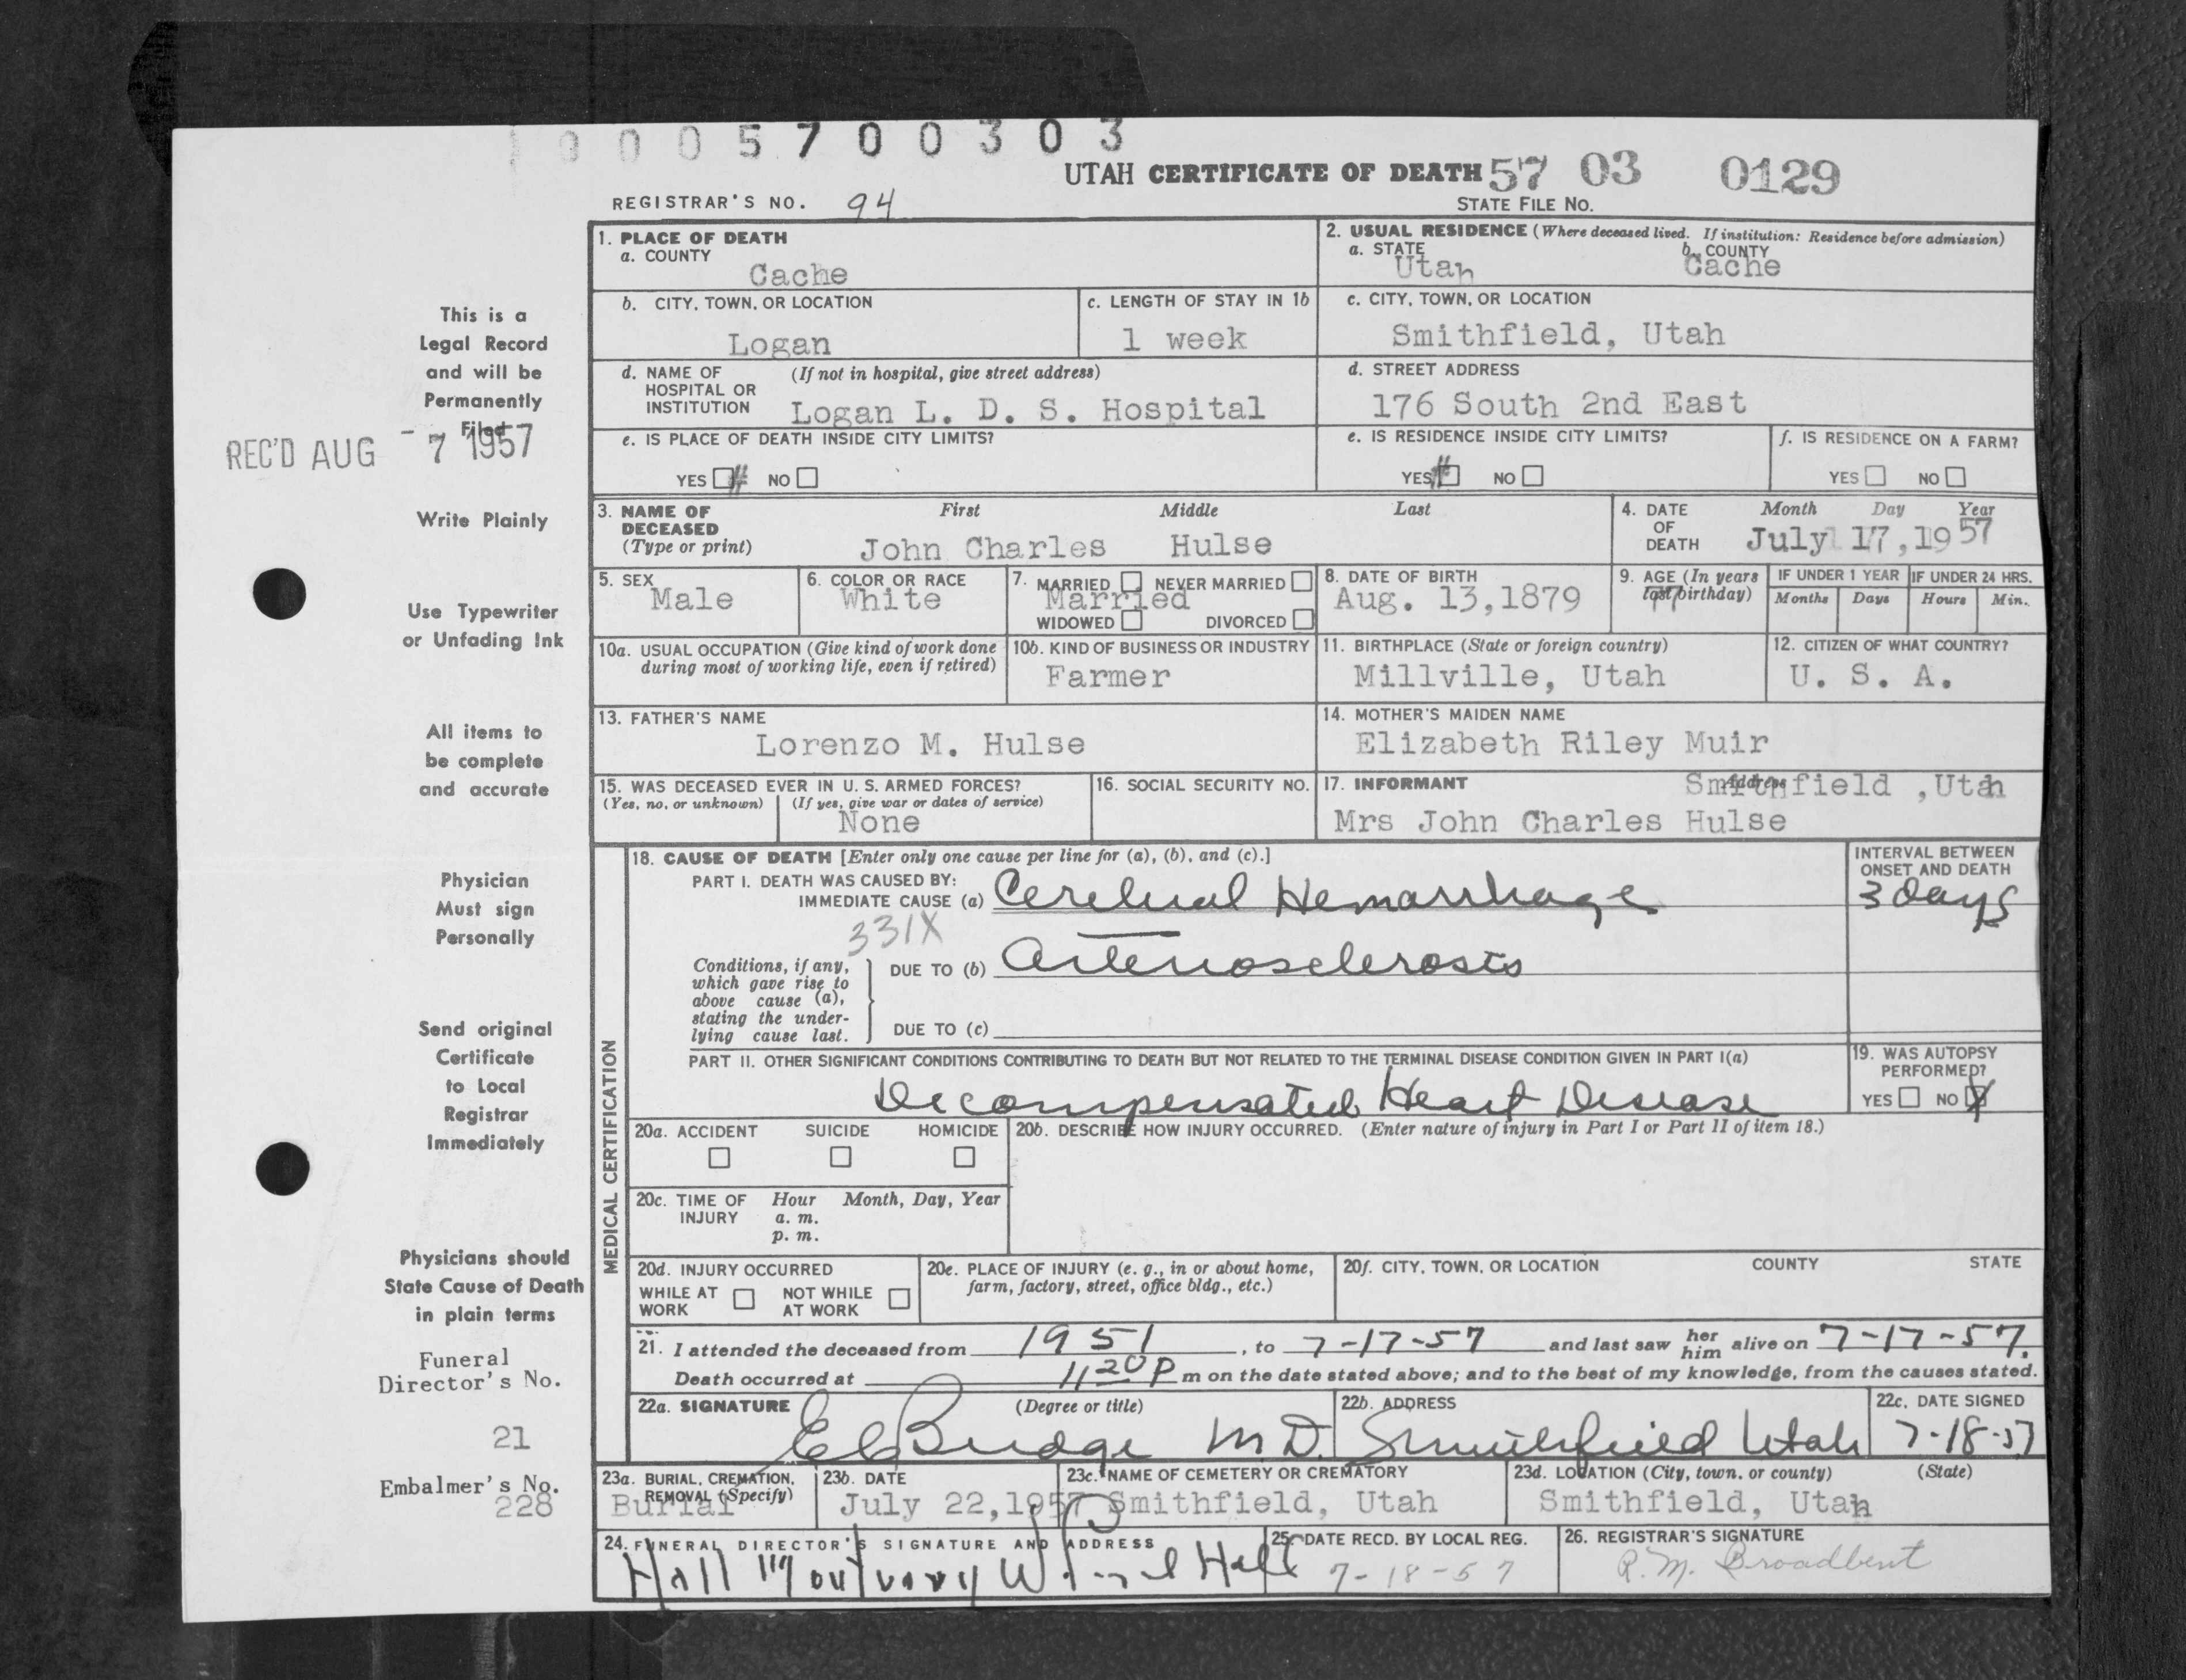 1 0 0 0 5 7 0 0 3 0 3
UTAH CERTIFICATE OF DEATH 57 03 0129
REGISTRAR'S NO. 94
STATE FILE NO.
1. PLACE OF DEATH
a. COUNTY
Cache
2. USUAL RESIDENCE (Where deceased lived. If institution: Residence before admission)
a. STATE
Utah
b. COUNTY
Cache
b. CITY, TOWN, OR LOCATION
Logan
c. LENGTH OF STAY IN 1b
1 week
c. CITY, TOWN, OR LOCATION
Smithfield, Utah
d. NAME OF (If not in hospital, give street address)
HOSPITAL OR
INSTITUTION Logan L. D. S. Hospital
d. STREET ADDRESS
176 South 2nd East
e. IS PLACE OF DEATH INSIDE CITY LIMITS?
YES # NO
e. IS RESIDENCE INSIDE CITY LIMITS?
YES # NO
f. IS RESIDENCE ON A FARM?
YES NO
3. NAME OF DECEASED (Type or print)
First Middle Last
John Charles Hulse
4. DATE OF DEATH
Month Day Year
July 17, 1957
5. SEX
Male
6. COLOR OR RACE
White
7. MARRIED NEVER MARRIED
Married
WIDOWED DIVORCED
8. DATE OF BIRTH
Aug. 13,1879
9. AGE (In years last birthday)
77
IF UNDER 1 YEAR IF UNDER 24 HRS.
Months Days Hours Min.
10a. USUAL OCCUPATION (Give kind of work done
during most of working life, even if retired)
10b. KIND OF BUSINESS OR INDUSTRY
Farmer
11. BIRTHPLACE (State or foreign country)
Millville, Utah
12. CITIZEN OF WHAT COUNTRY?
U. S. A.
13. FATHER'S NAME
Lorenzo M. Hulse
14. MOTHER'S MAIDEN NAME
Elizabeth Riley Muir
15. WAS DECEASED EVER IN U. S. ARMED FORCES?
(Yes, no, or unknown) (If yes, give war or dates of service)
None
16. SOCIAL SECURITY NO.
17. INFORMANT Address
Smithfield ,Utah
Mrs John Charles Hulse
MEDICAL CERTIFICATION
18. CAUSE OF DEATH [Enter only one cause per line for (a), (b), and (c).]
PART I. DEATH WAS CAUSED BY:
IMMEDIATE CAUSE (a) Cerebral Hemorrhage
INTERVAL BETWEEN
ONSET AND DEATH
3 days
331X
Conditions, if any,
which gave rise to
above cause (a),
stating the under-
lying cause last.
DUE TO (b) Arteriosclerosis
DUE TO (c)
PART II. OTHER SIGNIFICANT CONDITIONS CONTRIBUTING TO DEATH BUT NOT RELATED TO THE TERMINAL DISEASE CONDITION GIVEN IN PART I(a)
Decompensated Heart Disease
19. WAS AUTOPSY
PERFORMED?
YES NO X
20a. ACCIDENT SUICIDE HOMICIDE
20b. DESCRIBE HOW INJURY OCCURRED. (Enter nature of injury in Part I or Part II of item 18.)
20c. TIME OF INJURY
Hour Month, Day, Year
a. m.
p. m.
20d. INJURY OCCURRED
WHILE AT WORK NOT WHILE AT WORK
20e. PLACE OF INJURY (e. g., in or about home,
farm, factory, street, office bldg., etc.)
20f. CITY, TOWN, OR LOCATION COUNTY STATE
21. I attended the deceased from 1951, to 7-17-57 and last saw her him alive on 7-17-57.
Death occurred at 11 20 P m on the date stated above; and to the best of my knowledge, from the causes stated.
22a. SIGNATURE (Degree or title)
Budge M D.
22b. ADDRESS
Smithfield Utah
22c. DATE SIGNED
7-18-57
23a. BURIAL, CREMATION,
REMOVAL (Specify)
Burial
23b. DATE
July 22,1957
23c. NAME OF CEMETERY OR CREMATORY
Smithfield, Utah
23d. LOCATION (City, town, or county) (State)
Smithfield, Utah
24. FUNERAL DIRECTOR'S SIGNATURE AND ADDRESS
Hall Mortuary Hall
25. DATE RECD. BY LOCAL REG.
7-18-57
26. REGISTRAR'S SIGNATURE
R. M. Broadbent
This is a
Legal Record
and will be
Permanently
Filed
REC'D AUG - 7 1957
Write Plainly
Use Typewriter
or Unfading Ink
All items to
be complete
and accurate
Physician
Must sign
Personally
Send original
Certificate
to Local
Registrar
Immediately
Physicians should
State Cause of Death
in plain terms
Funeral
Director's No.
21
Embalmer's No.
228